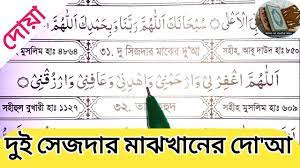 দোয়া
الْأَعْلَى سُبْحَانَكَ اللَّهُمَّ رَبَّنَا وَبِحَمْدِكَ اللَّهُمَّ
মুসলিম হাঃ ৪৮৬৪
৩১. দু সিজদার মাঝের দু'আ
সহীহ, আবু দাউদ হাঃ ৮৫০
اللَّهُمَّ اغْفِرْ لِي وَارْحَمْنِي وَاهْدِنِي وَعَافِنِي وَارْزُقْنِي
সহীহুল বুখারী হাঃ ১১২৭
৩২. তা
হুদ
সহীহ, মুসলিম হাঃ ৬০৯
দুই সেজদার মাঝখানের দো'আ